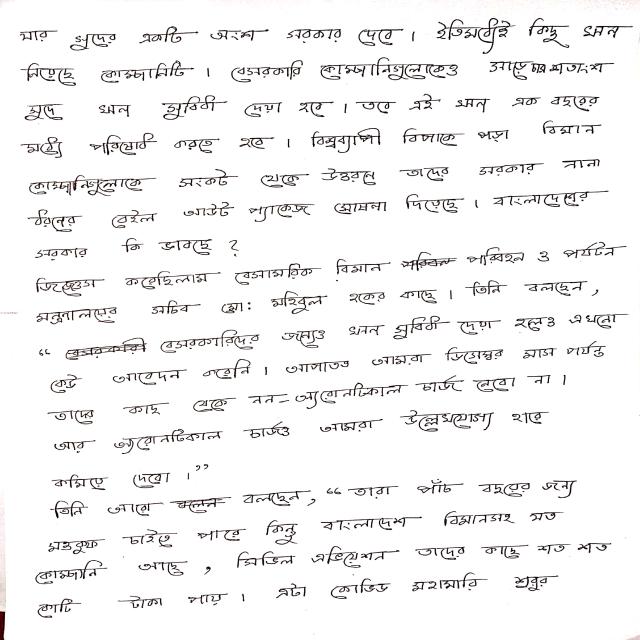 যার সুদের একটি অংশ সরকার দেবে । ইতিমধ্যেই কিছু ঋন
নিয়েছে কোম্পানিটি । বেসরকারি কোম্পানিগুলোকেও সাড়ে চার শতাংশ
সুদে ঋন সুবিধা দেয়া হবে । তবে এই ঋন এক বছরের
মধ্যে পরিশোধ করতে হবে । বিশ্বব্যাপী বিপাকে পড়া বিমান
কোম্পানিগুলোকে সংকট থেকে উত্তরনে তাদের সরকার নানা
ধরনের বেইল আউট প্যাকেজ ঘোষনা দিয়েছে । বাংলাদেশের
সরকার কি ভাবছে ?
জিজ্ঞেস করেছিলাম বেসামরিক বিমান পরিবহন ও পর্যটন
মন্ত্রণালয়ের সচিব মো: মহিবুল হকের কাছে । তিনি বলছেন,
“ বেসরকারিদের জন্যেও ঋন সুবিধা দেয়া হলেও এখনো
কেউ আবেদন করেনি । আপাতত আমরা ডিসেম্বর মাস পর্যন্ত
তাদের কাছ থেকে নন-অ্যারোনটিকাল চার্জ নেবো না ।
আর অ্যারোনটিকাল চার্জও আমরা উল্লেখযোগ্য হারে
কমিয়ে দেবো ।”
তিনি আরো বলছেন, “ তারা পাঁচ বছরের জন্য
মওকুফ চাইতে পারে কিন্তু বাংলাদেশ বিমানসহ যত
কোম্পানি আছে, সিভিল এভিয়েশন তাদের কাছে শত শত
কোটি টাকা পায় । এটা কোভিড মহামারি শুরুর